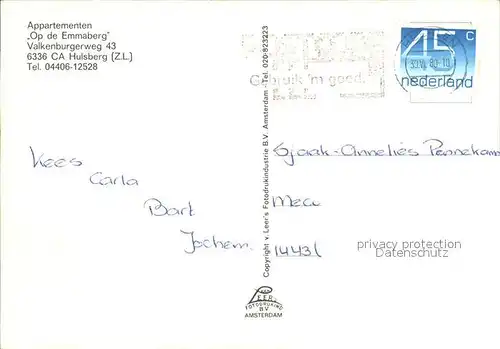 Appartementen
„Op de Emmaberg"
Valkenburgerweg 43
6336 CA Hulsberg (Z.L.)
Tel. 04406-12528
Gebruik 'm goed.
45 c
nederland
Kees
Carla
Bart
Jochem.
Copyright v. Leer's Fotodrukindustrie B.V. Amsterdam - Tel. 020-823223
Sjaak-Annelies Pennekam
privacy protection
Datenschutz
VAN
LEER'S
FOTODRUKIND
BV
AMSTERDAM